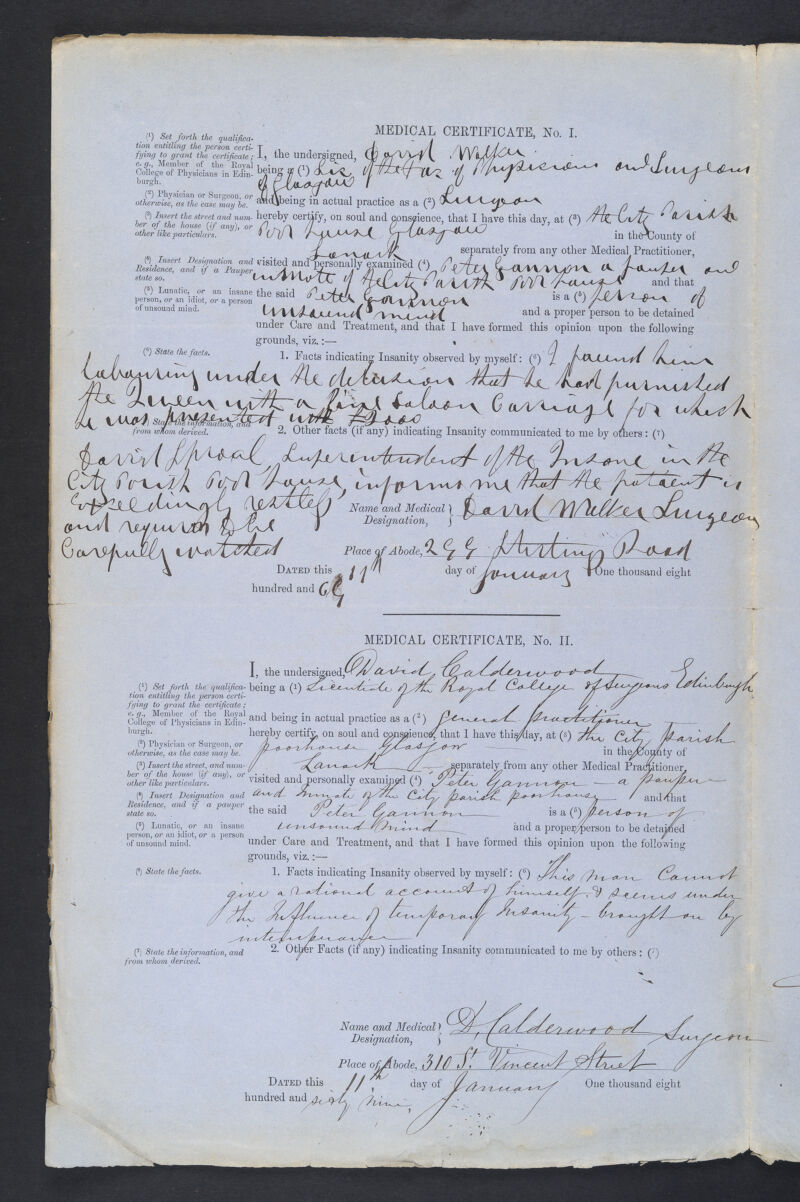 MEDICAL CERTIFICATE, No. I.
(1) Set forth the qualifica-
tion entitling the person certi-
fying to grant the certificate;
e. g., Member of the Royal
College of Physicians in Edin-
burgh.
(2) Physician or Surgeon, or
otherwise, as the case may be.
(3) Insert the street and num-
ber of the house (if any), or
other like particulars.
(4) Insert Designation and
Residence, and if a Pauper
state so.
(5) Lunatic, or an insane
person, or an idiot, or a person
of unsound mind.
(6) State the facts.
(7) State the information, and
from whom derived.
I, the undersigned, David Walker
being a (1) Lic of the Fac of Physicians and Surgeons
of Glasgow
and being in actual practice as a (2) Surgeon
hereby certify, on soul and conscience, that I have this day, at (3) the City Parish
Poor house Glasgow in the County of
Lanark separately from any other Medical Practitioner,
visited and personally examined (4) Peter Gannon a pauper and
inmate of the City Parish Poor house and that
the said Peter Gannon is a (5) person of
unsound mind and a proper person to be detained
under Care and Treatment, and that I have formed this opinion upon the following
grounds, viz.:—
1. Facts indicating Insanity observed by myself: (6) I found him
labouring under the delusion that he had furnished
the Queen with a fine Saloon Carriage for which
he was presented with
2. Other facts (if any) indicating Insanity communicated to me by others: (7)
David Sproal, Superintendent of the Insane in the
City Parish Poor house, informs me that the patient is
Exceedingly restless
and requires to be
Carefully watched
Name and Medical Designation, David Walker Surgeon
Place of Abode, 299 Stirling Road
DATED this 11th day of January One thousand eight
hundred and 69
MEDICAL CERTIFICATE, No. II.
(1) Set forth the qualifica-
tion entitling the person certi-
fying to grant the certificate;
e. g., Member of the Royal
College of Physicians in Edin-
burgh.
(2) Physician or Surgeon, or
otherwise, as the case may be.
(3) Insert the street, and num-
ber of the house (if any), or
other like particulars.
(4) Insert Designation and
Residence, and if a pauper
state so.
(5) Lunatic, or an insane
person, or an idiot, or a person
of unsound mind.
(6) State the facts.
(7) State the information, and
from whom derived.
I, the undersigned, David Calderwood
being a (1) Licentiate of the Royal College of Surgeons Edinburgh
and being in actual practice as a (2) general practitioner
hereby certify, on soul and conscience, that I have this day, at (3) the City parish
poorhouse Glasgow in the County of
Lanark separately from any other Medical Practitioner,
visited and personally examined (4) Peter Gannon – a pauper –
and Inmate of the City parish poorhouse and that
the said Peter Gannon is a (5) person of
unsound mind and a proper person to be detained
under Care and Treatment, and that I have formed this opinion upon the following
grounds, viz.:—
1. Facts indicating Insanity observed by myself: (6) This man Cannot
give a rational account of himself & seems under
the Influence of temporary Insanity – brought on by
intemperance
2. Other Facts (if any) indicating Insanity communicated to me by others: (7)
Name and Medical Designation, D. Calderwood Surgeon
Place of Abode, 310 St. Vincent Street
DATED this 11th day of January One thousand eight
hundred and sixty nine